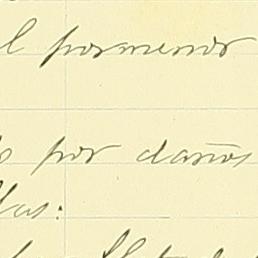 l pormenor
s por daños
las: